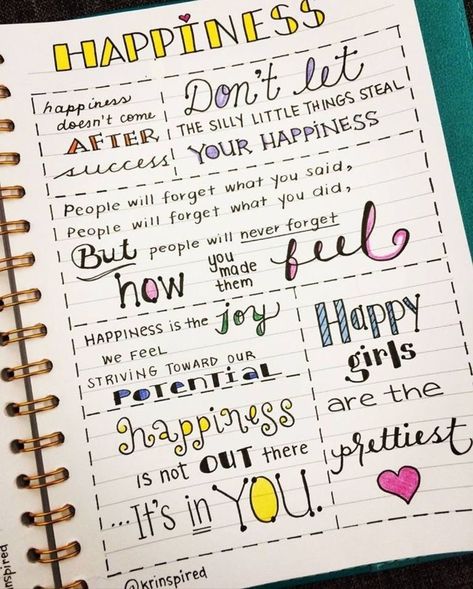 HAPPINESS
happiness
doesn't come
AFTER
success
Don't let
THE SILLY LITTLE THINGS STEAL
YOUR HAPPINESS
People will forget what you said,
People will forget what you did,
But people will never forget
how you made them feel
HAPPINESS is the joy
WE FEEL
STRIVING TOWARD OUR
POTENTIAL
Happy
girls
are the
prettiest
happiness
is not OUT there
...It's in YOU.
@krinspired
nspired